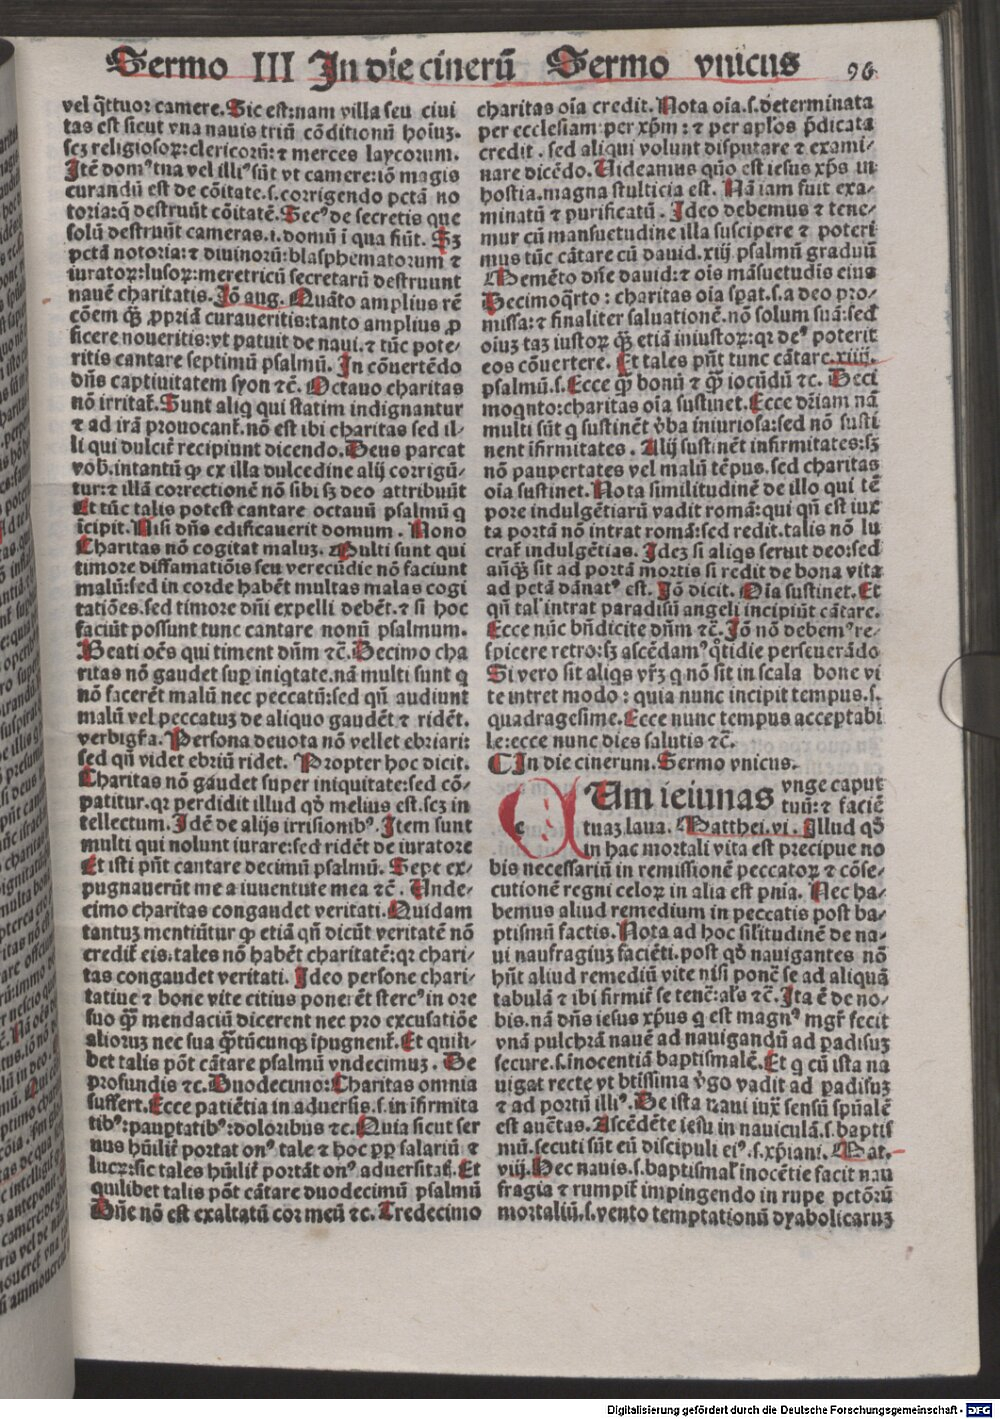 Sermo III In die cinerū Sermo vnicus 96
vel q̄ttuor camere. Sic est: nam villa seu ciui
tas est sicut vna nauis triū cōditionū hoīuꝫ.
scꝫ religiosoꝝ: clericorū: ⁊ merces laycorum.
Itē domꝰ tua vel illiꝰ sūt vt camere: iō magis
curandū est de cōitate. s. corrigendo pctā no
toria: q̄ destruūt cōitatē. Secꝰ de secretis que
solū destruūt cameras. i. domū ī qua fiūt. Sꝫ
pctā notoria: ⁊ diuinorū: blasphematorum ⁊
iuratoꝝ: lusoꝝ: meretricū secretarū destruunt
nauē charitatis. Iō aug. Quāto amplius rē
cōem qꝫ̄ ꝓpriā curaueritis: tanto amplius ꝓ
ficere noueritis: vt patuit de naui. ⁊ tūc pote/
ritis cantare septimū psalmū. In cōuertēdo
dn̄s captiuitatem syon ⁊c̄. Octauo charitas
nō irritat̄. Sunt aliq̄ qui statim indignantur
⁊ ad irā prouocant̄. nō est ibi charitas sed il-
li qui dulcit̄ recipiunt dicendo. Deus parcat
vob̄. intantū ꝙ ex illa dulcedine alij corrigū-
tur: ⁊ illā correctionē nō sibi sꝫ deo attribuūt
Et tūc talis potest cantare octauū psalmū q
īcipit. Nisi dn̄s edificauerit domum. Nono
Charitas nō cogitat maluꝫ. Multi sunt qui
timore diffamatiōis seu verecūdie nō faciunt
malū: sed in corde habēt multas malas cogi
tatiōes. sed timore dn̄i expelli debēt. ⁊ si hoc
faciūt possunt tunc cantare nonū psalmum.
Beati oēs qui timent dūm ⁊c̄. Decimo cha
ritas nō gaudet sup̄ iniqtate. nā multi sunt q
nō facerēt malū nec peccatū: sed qn̄ audiunt
malū vel peccatuꝫ de aliquo gaudēt ⁊ ridēt.
verbigr̄a. Persona deuota nō vellet ebriari:
sed qn̄ videt ebriū ridet. Propter hoc dicit.
Charitas nō gaudet super iniquitate: sed cō-
patitur. qꝛ perdidit illud qd̄ melius est. scꝫ in
tellectum. Idē de alijs irrisionibꝰ. Item sunt
multi qui nolunt iurare: sed ridēt de iuratore
Et isti pn̄t cantare decimū psalmū. Sepe ex-
pugnauerūt me a iuuentute mea ⁊c̄. Unde-
cimo charitas congaudet veritati. Quidam
tantuꝫ mentiūtur ꝙ etiā qn̄ dicūt veritatē nō
credit̄ eis. tales nō habēt charitatē: qꝛ chari-
tas congaudet veritati. Ideo persone chari-
tatiue ⁊ bone vite citius ponerēt stercꝰ in ore
suo qꝫ̄ mendaciū dicerent nec pro excusatiōe
aliorum nec sua q̄tūcunqꝫ īpugnent̄. Et quili-
bet talis pōt cātare psalmū vndecimuꝫ. De
profundis ⁊c. Duodecimo: Charitas omnia
suffert. Ecce patiētia in aduersis. s. in īfirmita
tibꝰ: pauptatibꝰ: doloribus ⁊c. Quia sicut ser
uus hūilit̄ portat onꝰ tale ⁊ hoc ꝓp̄ salariū ⁊
lucꝝ: sic tales hūilit̄ portāt onꝰ aduersitat̄. Et
quilibet talis pōt cātare duodecimū psalmū
Dn̄e nō est exaltatū cor meū ⁊c. Tredecimo
charitas oīa credit. Nota oīa. s. determinata
per ecclesiam per xp̄m: ⁊ per ap̄los p̄dicata
credit. sed aliqui volunt disputare ⁊ exami/
nare dicēdo. Uideamus quō est iesus xp̄s in
hostia. magna stulticia est. Nā iam fuit exa/
minatū ⁊ purificatū. Ideo debemus ⁊ tene/
mur cū mansuetudine illa suscipere ⁊ poteri
mus tūc cātare cū dauid. xiij psalmū graduū
Memēto dn̄e dauid: ⁊ oīs māsuetudīs eius
Decimoq̄rto: charitas oīa sp̄at. s. a deo pro/
missa: ⁊ finaliter saluationē. nō solum suā: sed
oīuꝫ taꝫ iustoꝝ qꝫ̄ etiā iniustoꝝ: qꝛ deꝰ poterit
eos cōuertere. Et tales pn̄t tunc cātare. xiiij.
psalmū. s. Ecce qꝫ̄ bonū ⁊ qꝫ̄ iocūdū ⁊c. Deci
moqnto: charitas oīa sustinet. Ecce dr̄iam nā
multi sūt q sustinēt v̄ba iniuriosa: sed nō susti
nent īfirmitates. Alij sustinēt infirmitates: sꝫ
nō paupertates vel malū tēpus. sed charitas
oīa sustinet. Nota similitudinē de illo qui tē
pore indulgētiarū vadit romā: qui qn̄ est iux
ta portā nō intrat romā: sed redit. talis nō lu
crat̄ indulgētias. Idē si aliqs seruit deo: sed
anqꝫ̄ sit ad portā mortis si redit de bona vita
ad pctā dānatꝰ est. Iō dicit. Oīa sustinet. Et
qn̄ tal' intrat paradisū angeli incipiūt cātare.
Ecce nūc bn̄dicite dn̄m ⁊c̄. Iō nō debemꝰ re-
spicere retro: sꝫ ascēdamꝰ q̄tidie perseuerādo
Si vero sit aliqs vr̄ꝫ q nō sit in scala bone vi
te intret modo: quia nunc incipit tempus. s.
quadragesime. Ecce nunc tempus acceptabi
le: ecce nunc dies salutis ⁊c̄.
In die cinerum. Sermo vnicus.
Um ieiunas vnge caput
tuū: ⁊ faciē
tuaꝫ laua. Matthei. vi. Illud qd̄
in hac mortali vita est precipue no
bis necessariū in remissionē peccatoꝝ ⁊ cōse/
cutionē regni celoꝝ in alia est pn̄ia. Nec ha-
bemus aliud remedium in peccatis post ba-
ptismū factis. Nota ad hoc sil'itudinē de na/
ui naufragiuꝫ faciēti. post qd̄ nauigantes nō
hn̄t aliud remediū vite nisi ponēt se ad aliquā
tabulā ⁊ ibi firmit̄ se tenēt: al's ⁊c̄. Ita ē de no/
bis. nā dn̄s iesus xp̄us q est magnꝰ mgr̄ fecit
vnā pulchrā nauē ad nauigandū ad padisuꝫ
secure. s. īnocentiā baptismalē. Et q cū ista na
uigat recte vt btīssima v̄go vadit ad padisuꝫ
⁊ ad portū illiꝰ. De ista naui iux̄ sensū spūalē
est auētas. Ascēdēte iesu in nauiculā. s. baptis
mū. secuti sūt eū discipuli eiꝰ. s. xp̄iani. Mat.
viij. Hec nauis. s. baptismal' inocētie facit nau
fragia ⁊ rumpit̄ impingendo in rupe pctōrū
mortaliū. s. vento temptationū dyabolicaruꝫ
Digitalisierung gefördert durch die Deutsche Forschungsgemeinschaft - DFG